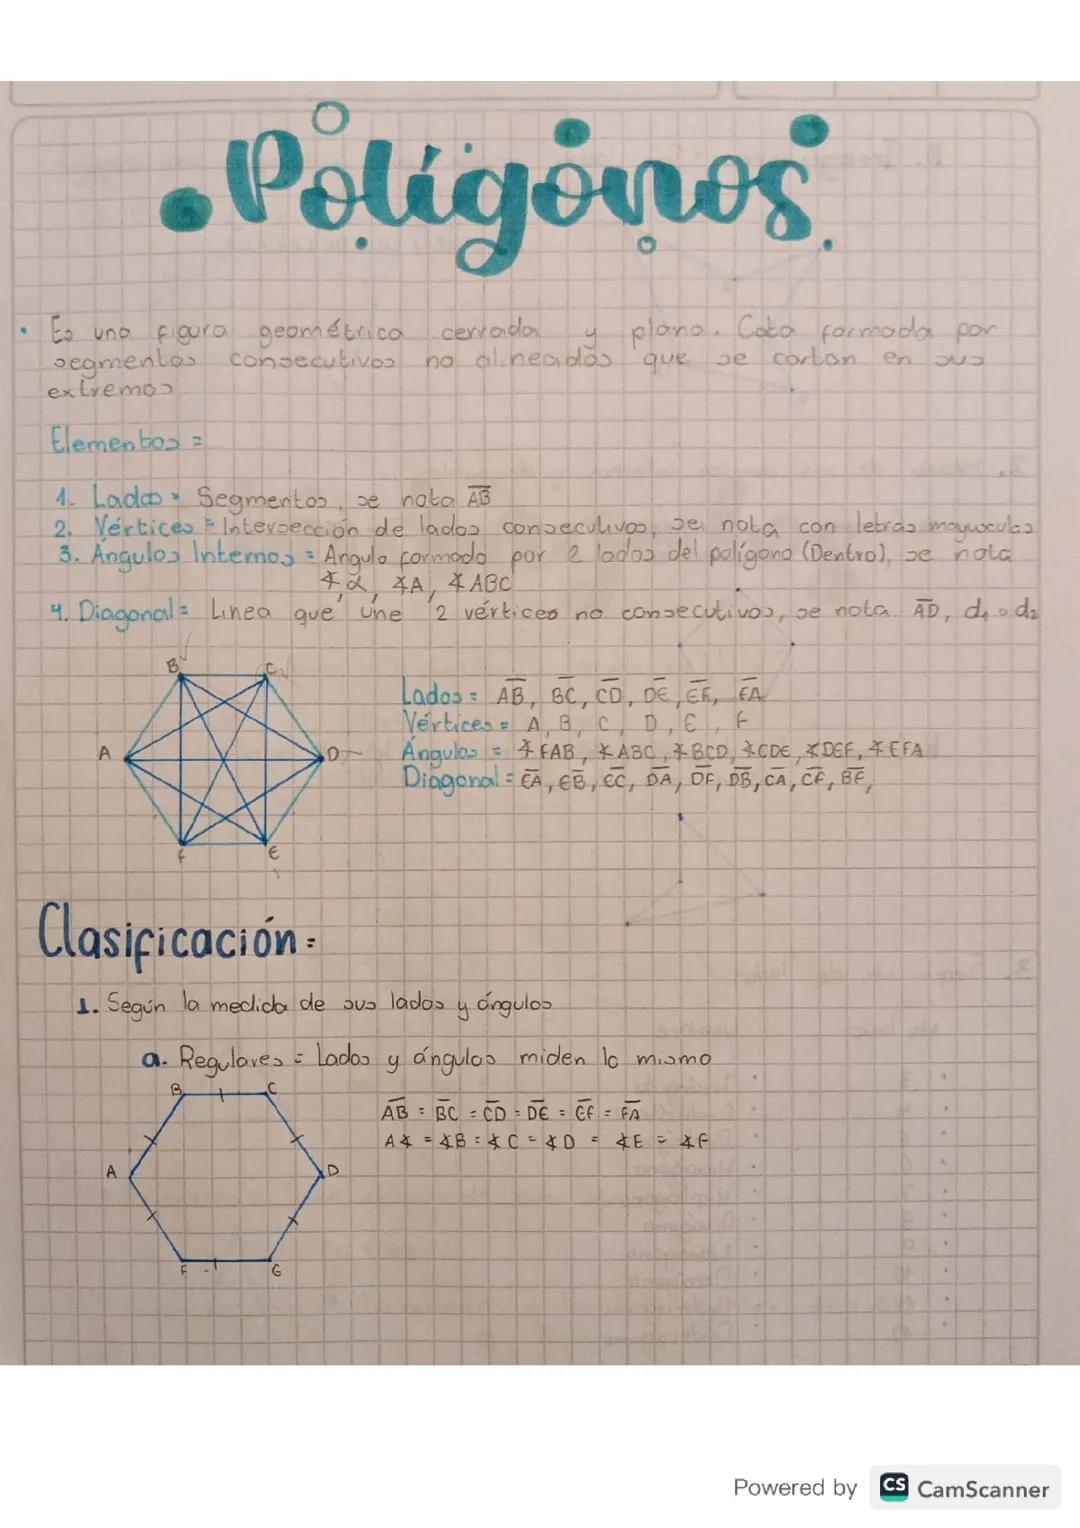 Polígonos
• Es una figura geométrica cerrada y plana. Esta formada por
segmentos consecutivos no alineados que se cortan en sus
extremos
Elementos =
1. Lados = Segmentos, se nota A̅B̅
2. Vértices = Intersección de lados consecutivos, se nota con letras mayusculas
3. Ángulos Internos = Angulo formado por 2 lados del polígono (Dentro), se nota
∡α, ∡A, ∡ABC
4. Diagonal = Linea que une 2 vértices no consecutivos, se nota A̅D̅, d₁ o d₂
B C
A D
F E
Lados = A̅B̅, B̅C̅, C̅D̅, D̅E̅, E̅F̅, F̅A̅
Vértices = A, B, C, D, E, F
Ángulos = ∡FAB, ∡ABC, ∡BCD, ∡CDE, ∡DEF, ∡EFA
Diagonal = E̅A̅, E̅B̅, E̅C̅, D̅A̅, D̅F̅, D̅B̅, C̅A̅, C̅F̅, B̅F̅,
Clasificación =
1. Según la medida de sus lados y ángulos
a. Regulares = Lados y ángulos miden lo mismo
B C
A D
F G
A̅B̅ = B̅C̅ = C̅D̅ = D̅E̅ = E̅F̅ = F̅A̅
A∡ = ∡B = ∡C = ∡D = ∡E = ∡F
Powered by CS CamScanner